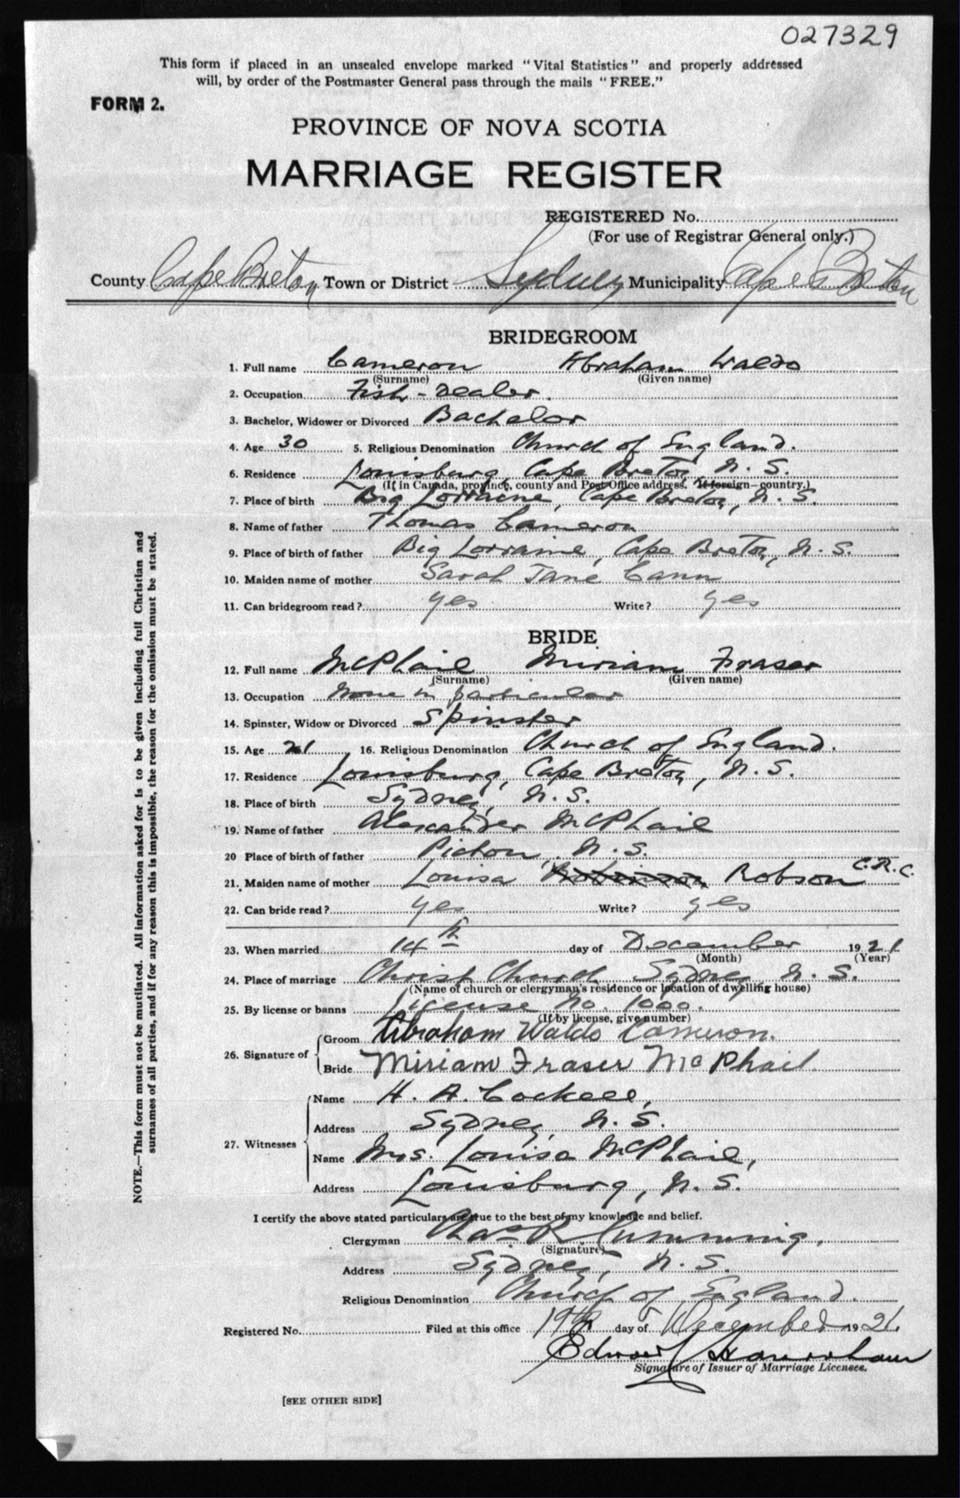 027329
This form if placed in an unsealed envelope marked "Vital Statistics" and properly addressed
will, by order of the Postmaster General pass through the mails "FREE."
FORM 2.
PROVINCE OF NOVA SCOTIA
MARRIAGE REGISTER
REGISTERED No.
(For use of Registrar General only.)
County Cape Breton Town or District Sydney Municipality Cape Breton
BRIDEGROOM
1. Full name Cameron Abraham Waldo
(Surname) (Given name)
2. Occupation Fish-dealer.
3. Bachelor, Widower or Divorced Bachelor
4. Age 30 5. Religious Denomination Church of England.
6. Residence Louisburg, Cape Breton, N. S.
(If in Canada, province, county and Post Office address. If foreign—country.)
7. Place of birth Big Lorraine, Cape Breton, N. S.
8. Name of father Thomas Cameron
9. Place of birth of father Big Lorraine, Cape Breton, N. S.
10. Maiden name of mother Sarah Jane Cann
11. Can bridegroom read? yes Write? yes
BRIDE
12. Full name McPhail Miriam Fraser
(Surname) (Given name)
13. Occupation None in particular
14. Spinster, Widow or Divorced Spinster
15. Age 21 16. Religious Denomination Church of England.
17. Residence Louisburg, Cape Breton, N. S.
18. Place of birth Sydney, N. S.
19. Name of father Alexander McPhail
20 Place of birth of father Pictou, N. S.
21. Maiden name of mother Louisa Robson C.R.C.
22. Can bride read? yes Write? yes
23. When married 14th day of December 1921
(Month) (Year)
24. Place of marriage Christ Church, Sydney, N. S.
(Name of church or clergyman's residence or location of dwelling house)
25. By license or banns License No. 1000.
(If by license, give number)
26. Signature of
Groom Abraham Waldo Cameron.
Bride Miriam Fraser McPhail.
27. Witnesses
Name H. A. Cockell,
Address Sydney, N. S.
Name Mrs. Louisa McPhail,
Address Louisburg, N. S.
I certify the above stated particulars are true to the best of my knowledge and belief.
Clergyman Chas R. Cumming,
(Signature)
Address Sydney, N. S.
Religious Denomination Church of England.
Registered No. Filed at this office 19th day of December 1921
Edward
Signature of Issuer of Marriage Licenses.
[SEE OTHER SIDE]
NOTE.—This form must not be mutilated. All information asked for is to be given including full Christian and
surnames of all parties, and if for any reason this is impossible, the reason for the omission must be stated.